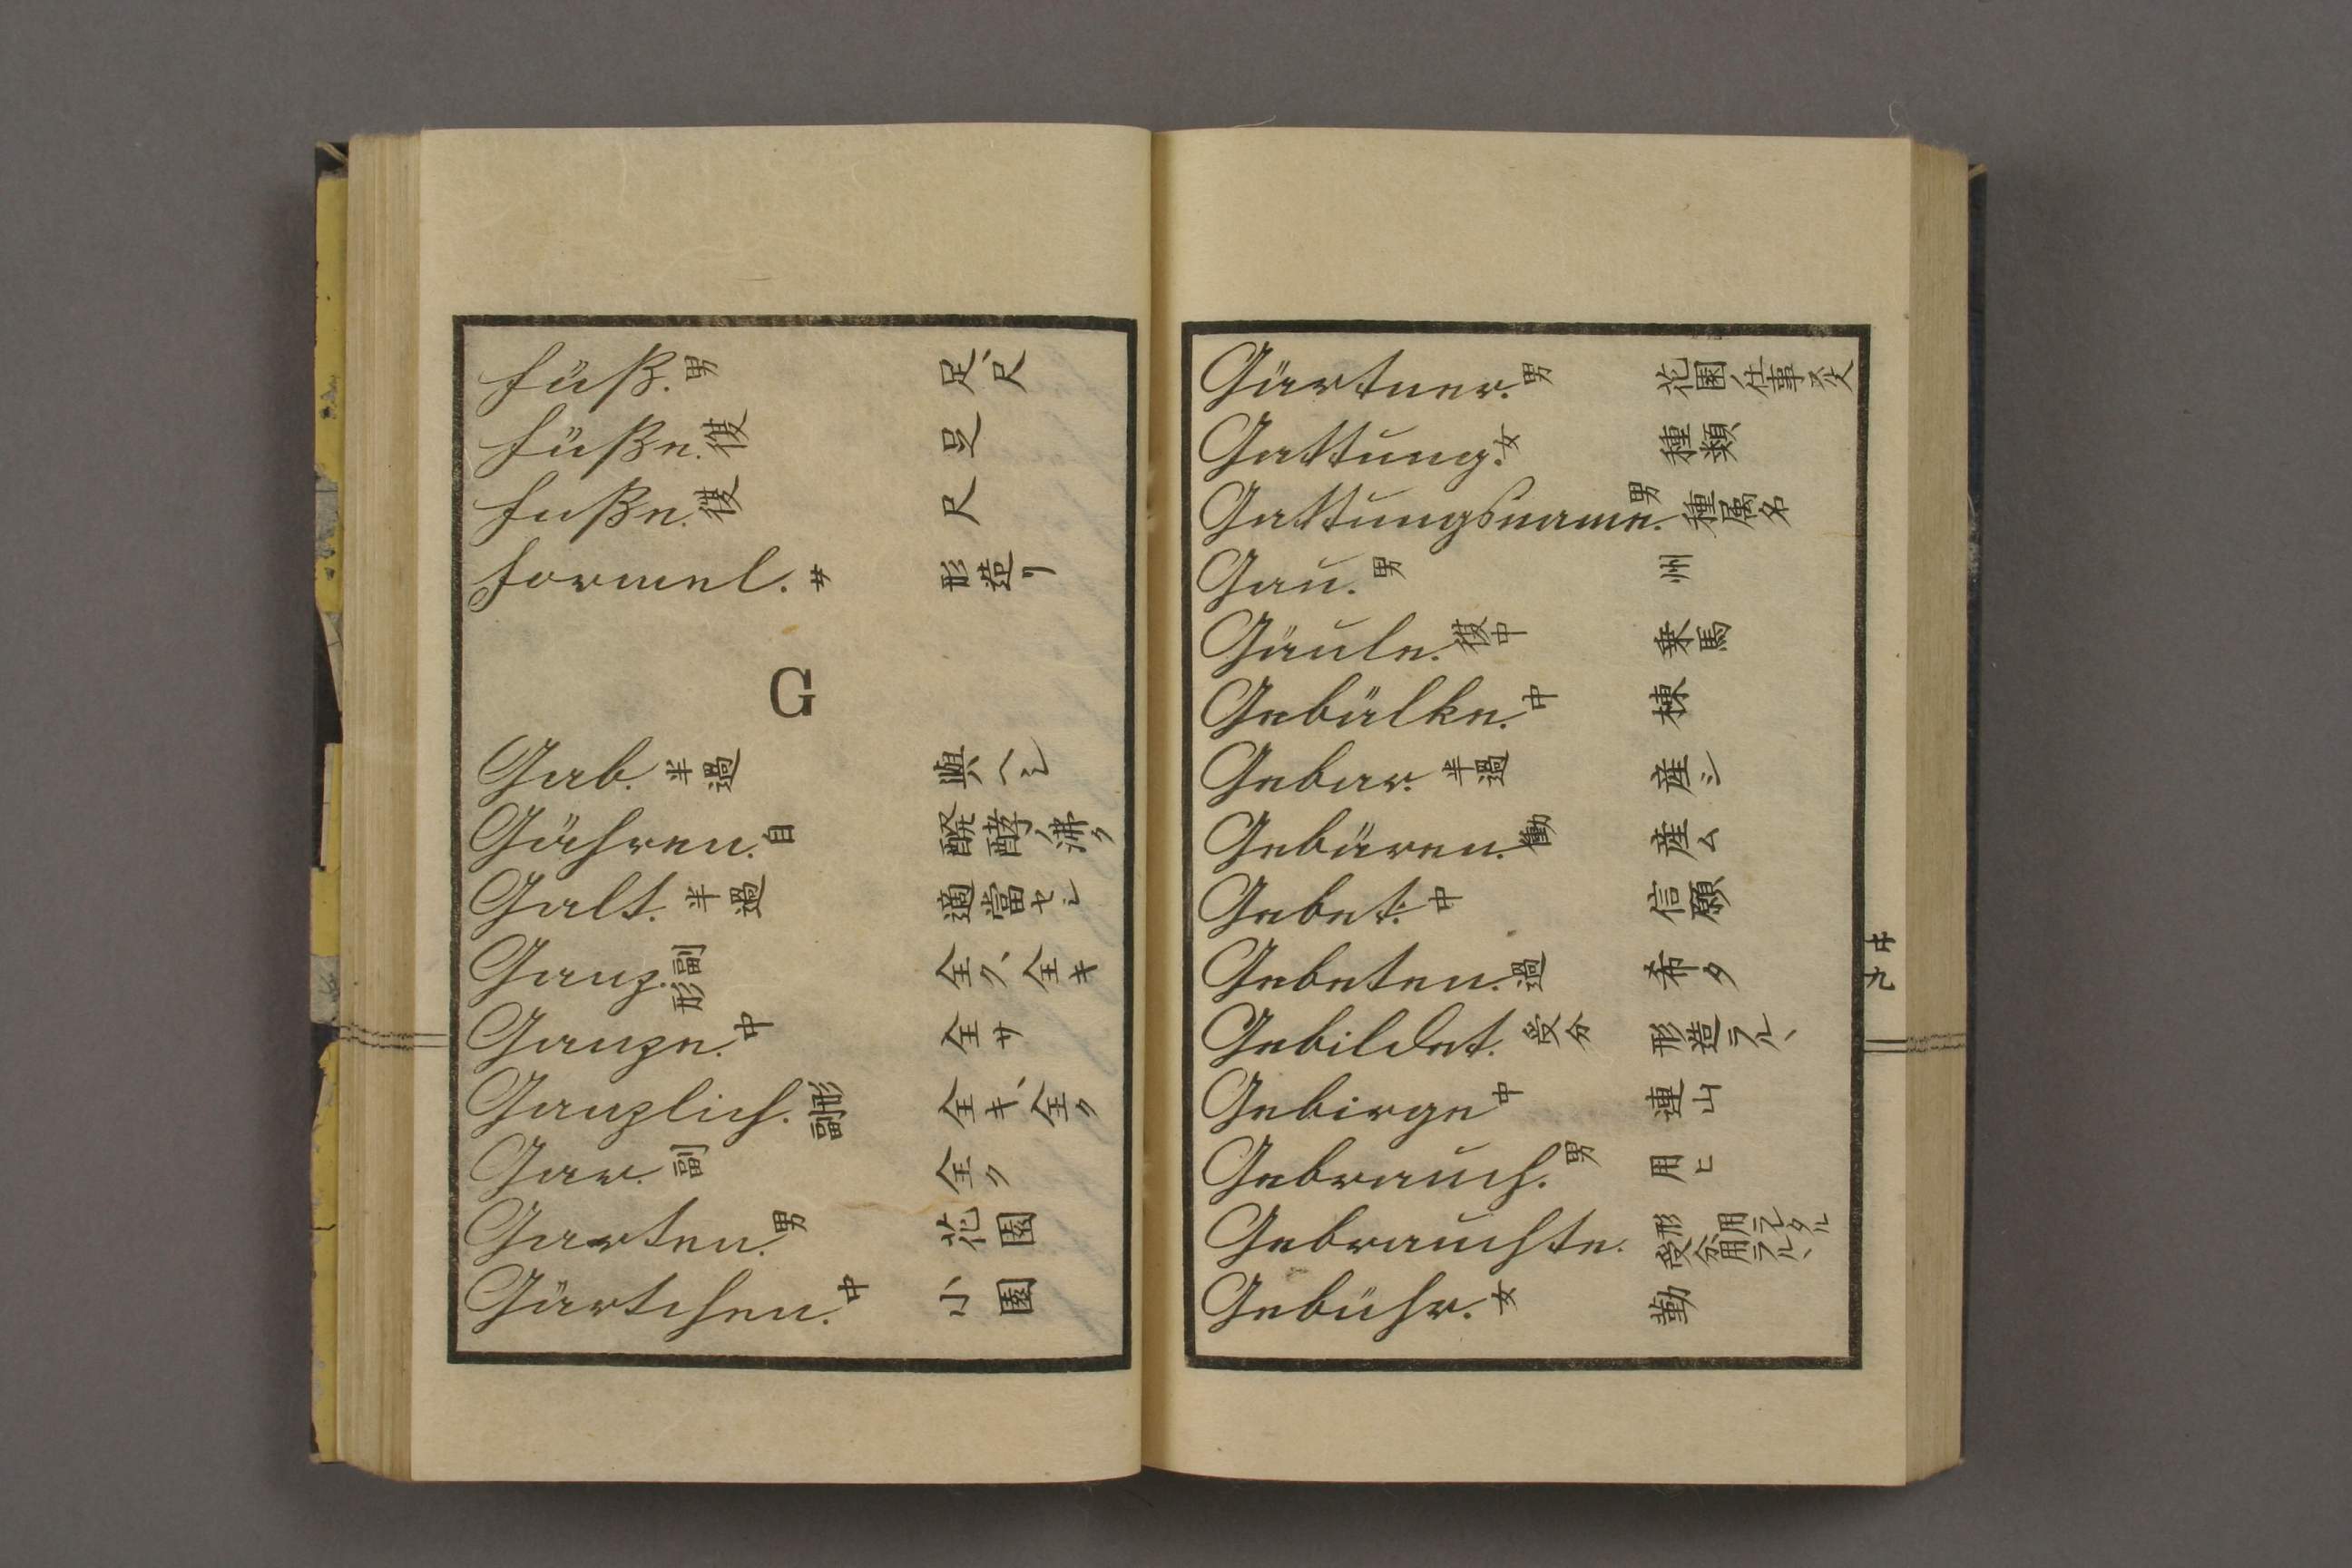 Fuß. 男 足、尺
Füße. 復 足
Fuße. 復 尺
Formel. 女 形造リ
G
Gab. 半過 與ヘシ
Gähren. 自 醗酵ノ沸ク
Galt. 半過 適當セシ
Ganz. 副形 全ク、全キ
Ganze. 中 全サ
Ganzlich. 形副 全キ、全ク
Gar. 副 全ク
Garten. 男 花園
Gärtchen. 中 小園
Gärtner. 男 花園ノ仕事スル人
Gattung. 女 種類
Gattungsname. 男 種属名
Gau. 男 州
Gäule. 復中 乗馬
Gebälke. 中 棟
Gebar. 半過 産シ
Gebären. 働 産ム
Gebet. 中 信願
Gebeten. 過 希タ
Gebildet. 受分 形造ラル、
Gebirge 中 連山
Gebrauch. 男 用ヒ
Gebrauchte. 形 用ラレタル 受分 用ラル、
Gebühr. 女 勤
廿九